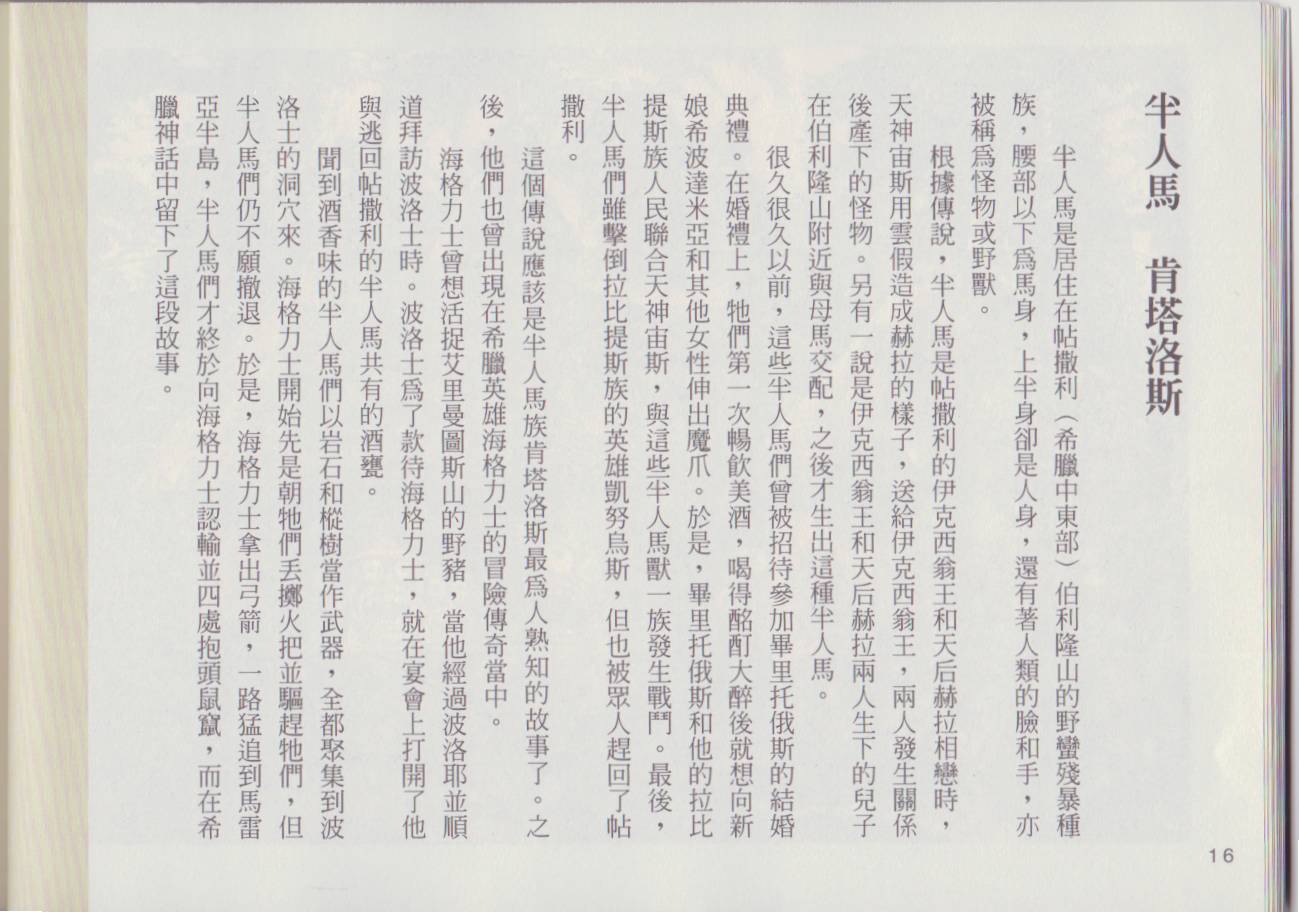 半人馬　肯塔洛斯
半人馬是居住在帖撒利（希臘中東部）伯利隆山的野蠻殘暴種
族，腰部以下爲馬身，上半身卻是人身，還有著人類的臉和手，亦
被稱爲怪物或野獸。
根據傳說，半人馬是帖撒利的伊克西翁王和天后赫拉相戀時，
天神宙斯用雲假造成赫拉的樣子，送給伊克西翁王，兩人發生關係
後產下的怪物。另有一說是伊克西翁王和天后赫拉兩人生下的兒子
在伯利隆山附近與母馬交配，之後才生出這種半人馬。
很久很久以前，這些半人馬們曾被招待參加畢里托俄斯的結婚
典禮。在婚禮上，牠們第一次暢飲美酒，喝得酩酊大醉後就想向新
娘希波達米亞和其他女性伸出魔爪。於是，畢里托俄斯和他的拉比
提斯族人民聯合天神宙斯，與這些半人馬獸一族發生戰鬥。最後，
半人馬們雖擊倒拉比提斯族的英雄凱努烏斯，但也被眾人趕回了帖
撒利。
這個傳說應該是半人馬族肯塔洛斯最爲人熟知的故事了。之
後，他們也曾出現在希臘英雄海格力士的冒險傳奇當中。
海格力士曾想活捉艾里曼圖斯山的野豬，當他經過波洛耶並順
道拜訪波洛士時。波洛士爲了款待海格力士，就在宴會上打開了他
與逃回帖撒利的半人馬共有的酒甕。
聞到酒香味的半人馬們以岩石和樅樹當作武器，全都聚集到波
洛士的洞穴來。海格力士開始先是朝牠們丟擲火把並驅趕牠們，但
半人馬們仍不願撤退。於是，海格力士拿出弓箭，一路猛追到馬雷
亞半島，半人馬們才終於向海格力士認輸並四處抱頭鼠竄，而在希
臘神話中留下了這段故事。
16